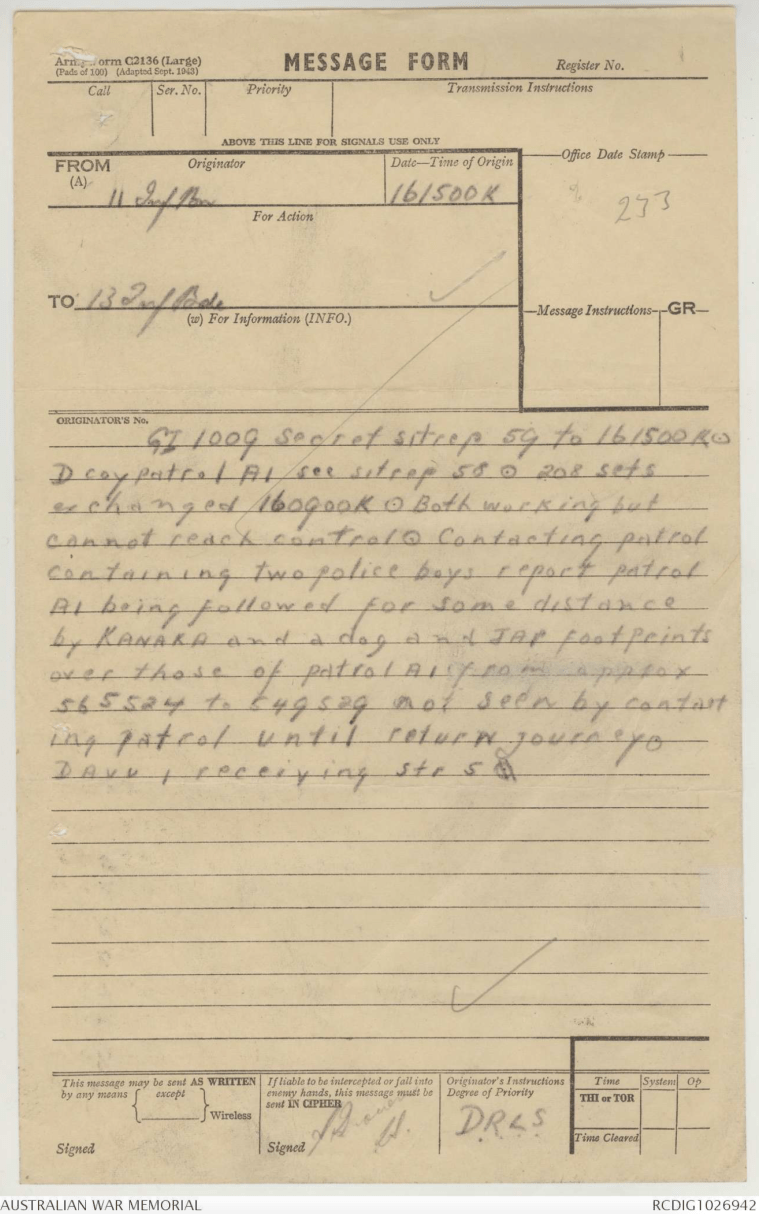 Army Form C2136 (Large)
(Pads of 100) (Adapted Sept. 1943)
MESSAGE FORM
Register No.
Call
Ser. No.
Priority
Transmission Instructions
ABOVE THIS LINE FOR SIGNALS USE ONLY
FROM
(A)
Originator
Date—Time of Origin
Office Date Stamp
11 Inf Bn
161500K
233
For Action
TO 13 Inf Bde
(w) For Information (INFO.)
Message Instructions
GR
ORIGINATOR'S No.
GI 1009 Secret sitrep 59 to 161500K ⊙
D coy patrol A1 see sitrep 58 ⊙ 208 sets
exchanged 160900K ⊙ Both working but
cannot reach control ⊙ Contacting patrol
containing two police boys report patrol
A1 being followed for some distance
by KANAKA and a dog and JAP footprints
over those of patrol A1 from approx
565524 to 549529 not seen by contact
ing patrol until return journey ⊙
DAVU 1 receiving str 5
This message may be sent AS WRITTEN
by any means
except
Wireless
Signed
If liable to be intercepted or fall into
enemy hands, this message must be
sent IN CIPHER
Signed
Originator's Instructions
Degree of Priority
D.R.L.S
Time
System
Op
THI or TOR
Time Cleared
AUSTRALIAN WAR MEMORIAL
RCDIG1026942